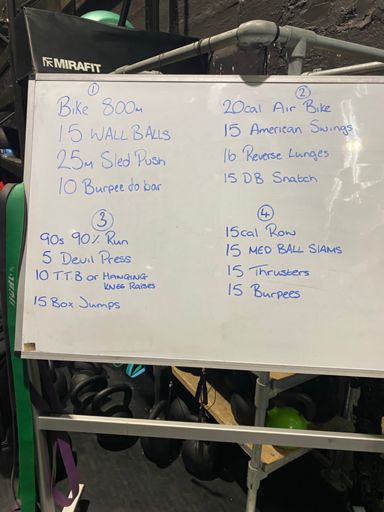 MIRAFIT
①
Bike 800m
15 WALL BALLS
25m Sled Push
10 Burpee to bar
②
20cal Air Bike
15 American Swings
16 Reverse Lunges
15 DB Snatch
③
90s 90% Run
5 Devil Press
10 T.T.B or HANGING
KNEE RAISES
15 Box Jumps
④
15cal Row
15 MED BALL SLAMS
15 Thrusters
15 Burpees